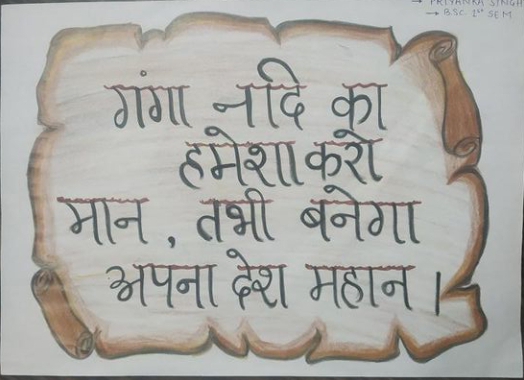 → PRIYANKA SINGH
→ BSC 1st SEM
गंगा नदि का
हमेशा करो
मान, तभी बनेगा
अपना देश महान।